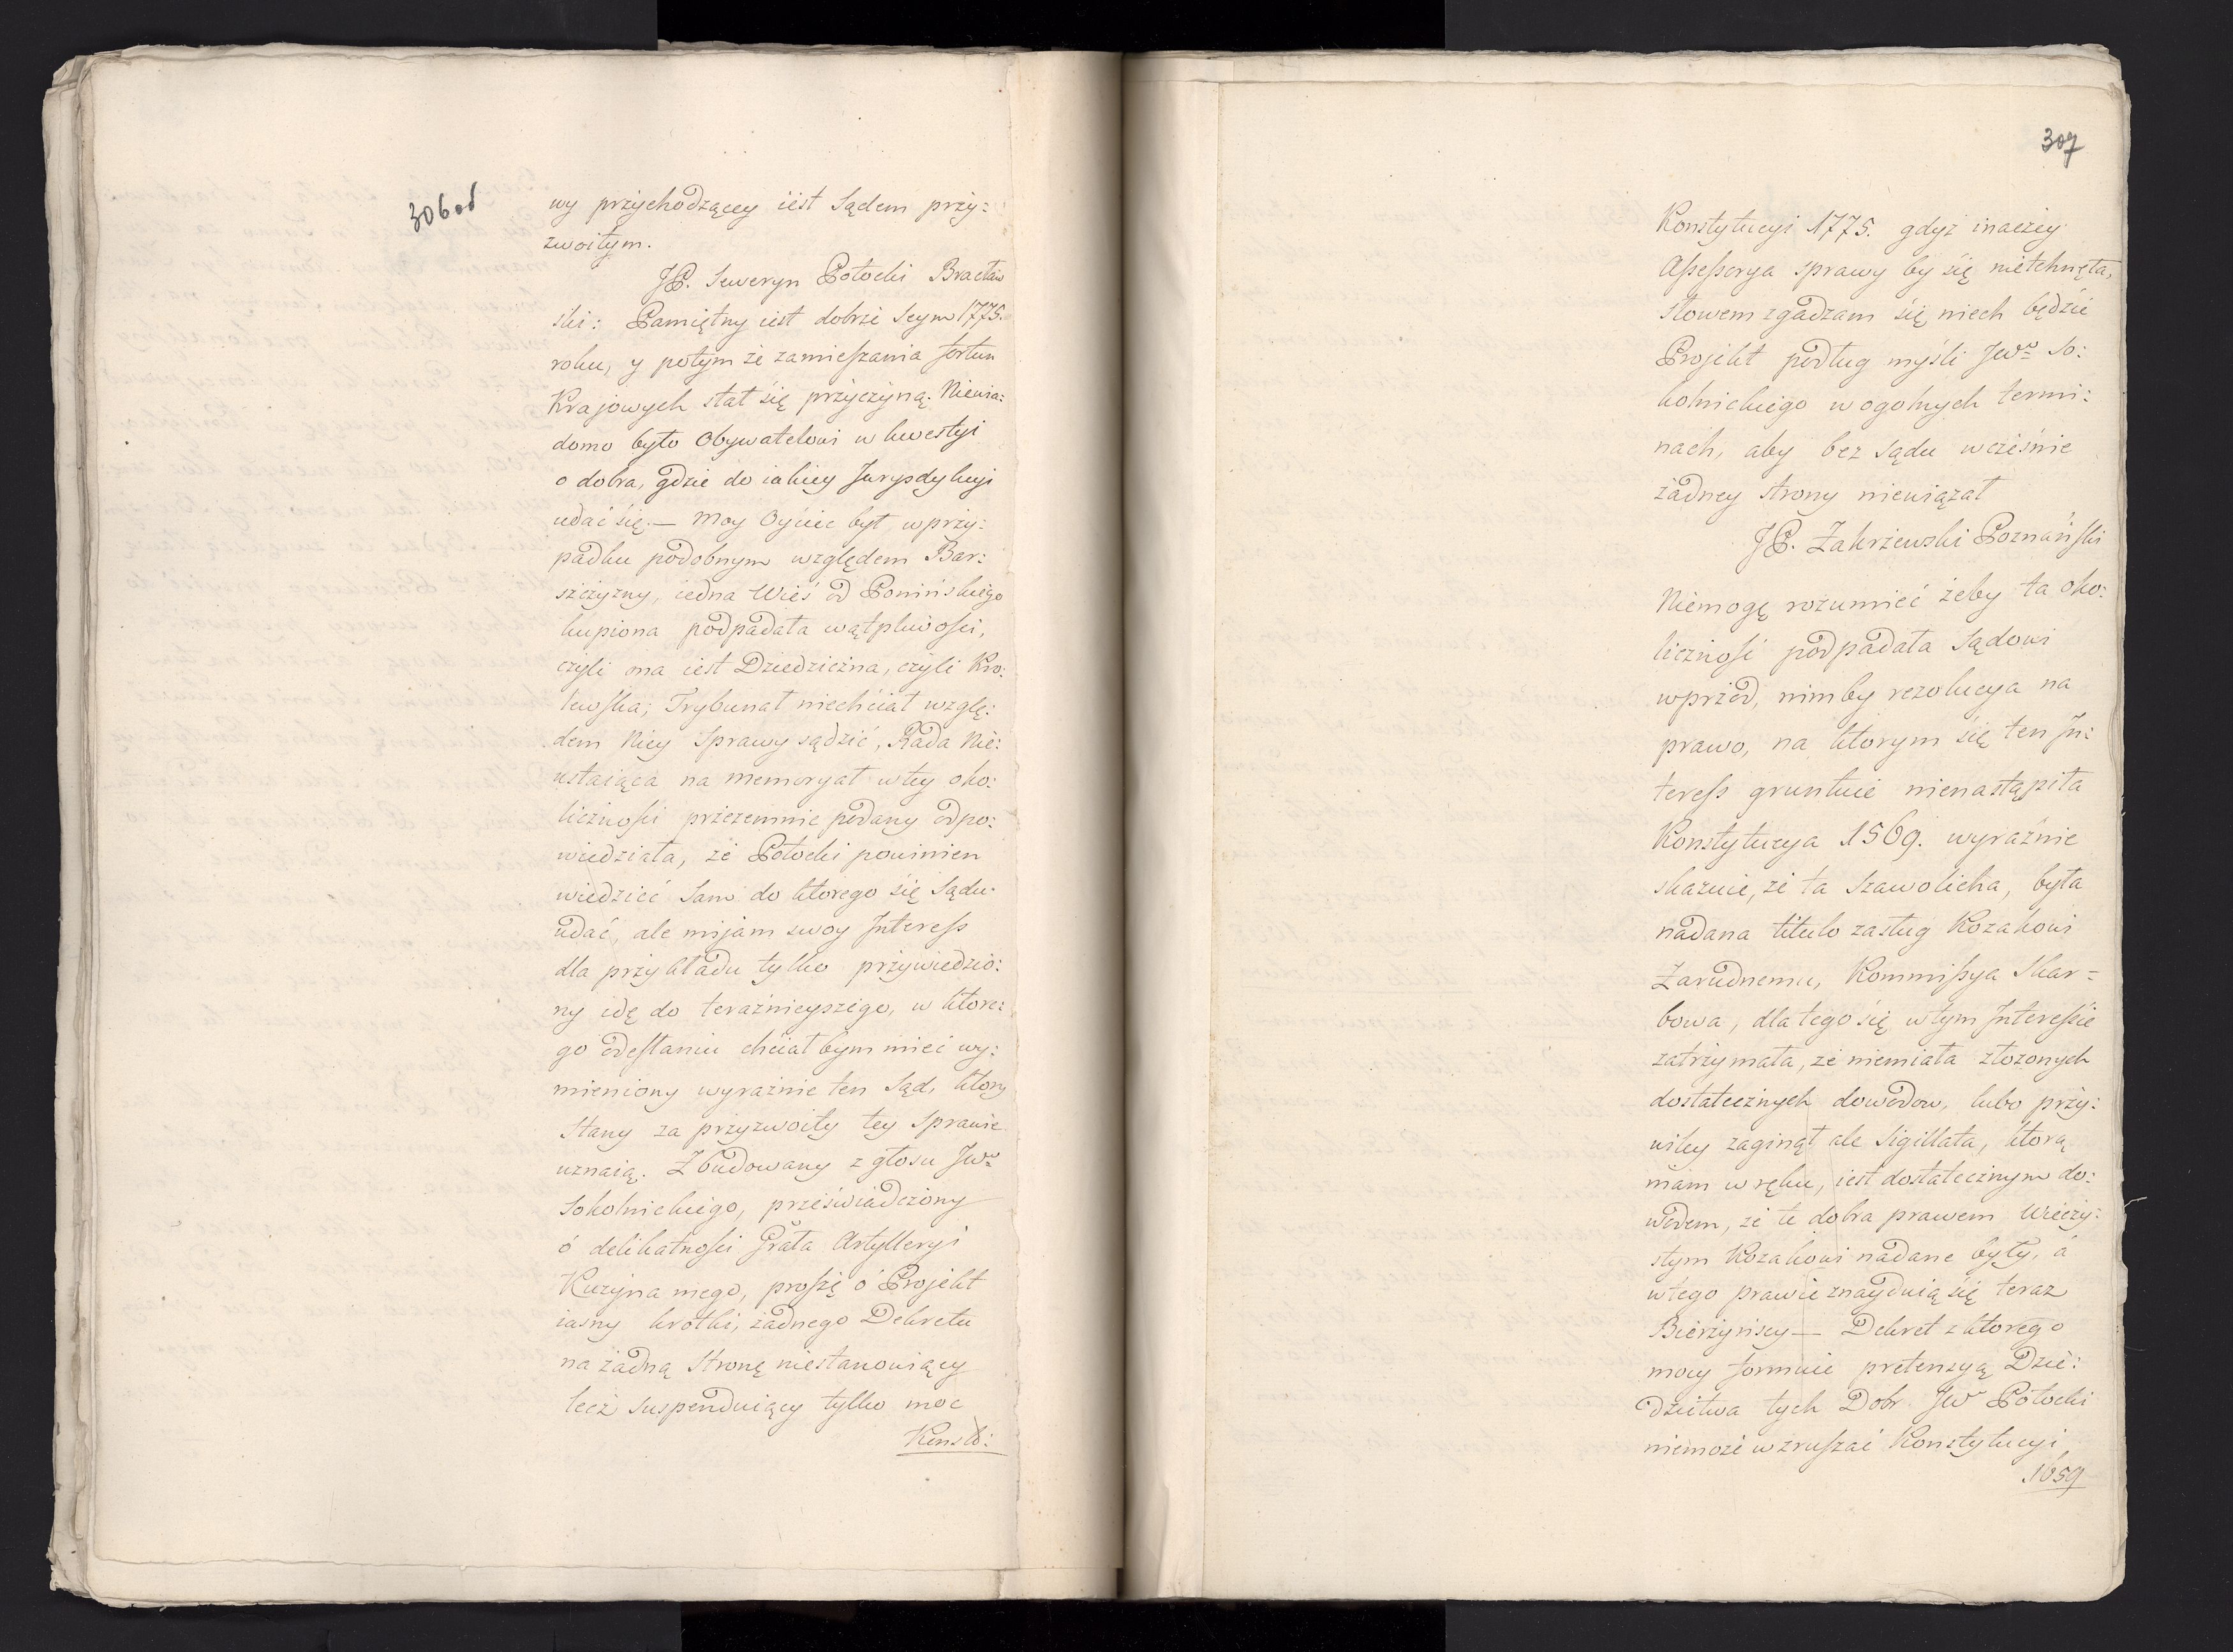 306 od
wy przychodzącey iest Sądem przy:
zwoitym.
JP. Seweryn Potocki Bracław
ski: Pamiętny iest dobrze Seym 1775.
roku, y potym że zamieszania fortun
Krajowych stał się przyczyną. Niewia:
domo było Obywatelowi w kwestyi
o dobra, gdzie do iakiey Jurysdykcyi
udać się. — Moy Oyciec był w przy:
padku podobnym względem Bar:
szczyzny, iedna Wieś od Ponińskiego
kupiona podpadała wątpliwości,
czyli ona iest Dziedziczna, czyli Kro:
lewska; Trybunał niechciał wzglę:
dem Niey Sprawy sądzić, Rada Nie:
ustaiąca na memoryał w tey oko:
liczności przezemnie podany odpo:
wiedziała, że Potocki powinien
wiedzieć Sam do ktorego się Sądu
udać, ale mijam swoy Interess
dla przykładu tylko przywiedzio:
ny idę do teraźnieyszego, w ktore:
go odesłaniu chciał bym mieć wy:
mieniony wyraźnie ten Sąd, ktory
Stany za przyzwoity tey Sprawie
uznaią. Zbudowany z głosu JW
Sokolnickiego, przeświadczony
ó delikatności Grała Artylleryi
Kuzyna mego, proszę ó Projekt
iasny krotki, żadnego Dekretu
na żadną Stronę niestanowiący
lecz suspenduiący tylko moc
Konst:
307
Konstytucyi 1775. gdyż inaczey
Assessorya sprawy by się nietchnęła,
słowem zgadzam się niech będzie
Projekt podług myśli JW So:
kolnickiego w ogolnych termi:
nach, aby bez Sądu wcześnie
żadney strony niewiązał
JP. Zakrzewski Poznański
Niemogę rozumieć żeby ta oko:
liczność podpadała Sądowi
wprzod, nim by rezolucya na
prawo, na ktorym się ten In:
teress gruntuie nienastąpiła
Konstytucya 1569. wyraźnie
skazuie, że ta Szawolicha, była
nadana titulo zasług Kozakowi
Zarudnemu, Kommissya Skar=
bowa, dla tego się w tym Interessie
zatrzymała, że niemiała złożonych
dostatecznych dowodow, lubo przy:
wiley zaginął ale Sigillata, ktorą
mam w ręku, iest dostatecznym do:
wodem, że te dobra prawem Wieczy:
stym Kozakowi nadane były, á
w tego prawie znayduią się teraz
Bierzyńscy — Dekret z ktorego
mocy formuie pretensyą Dzie:
dzictwa tych Dobr JW Potocki
niemoże wzruszać Konstytucyi
1659